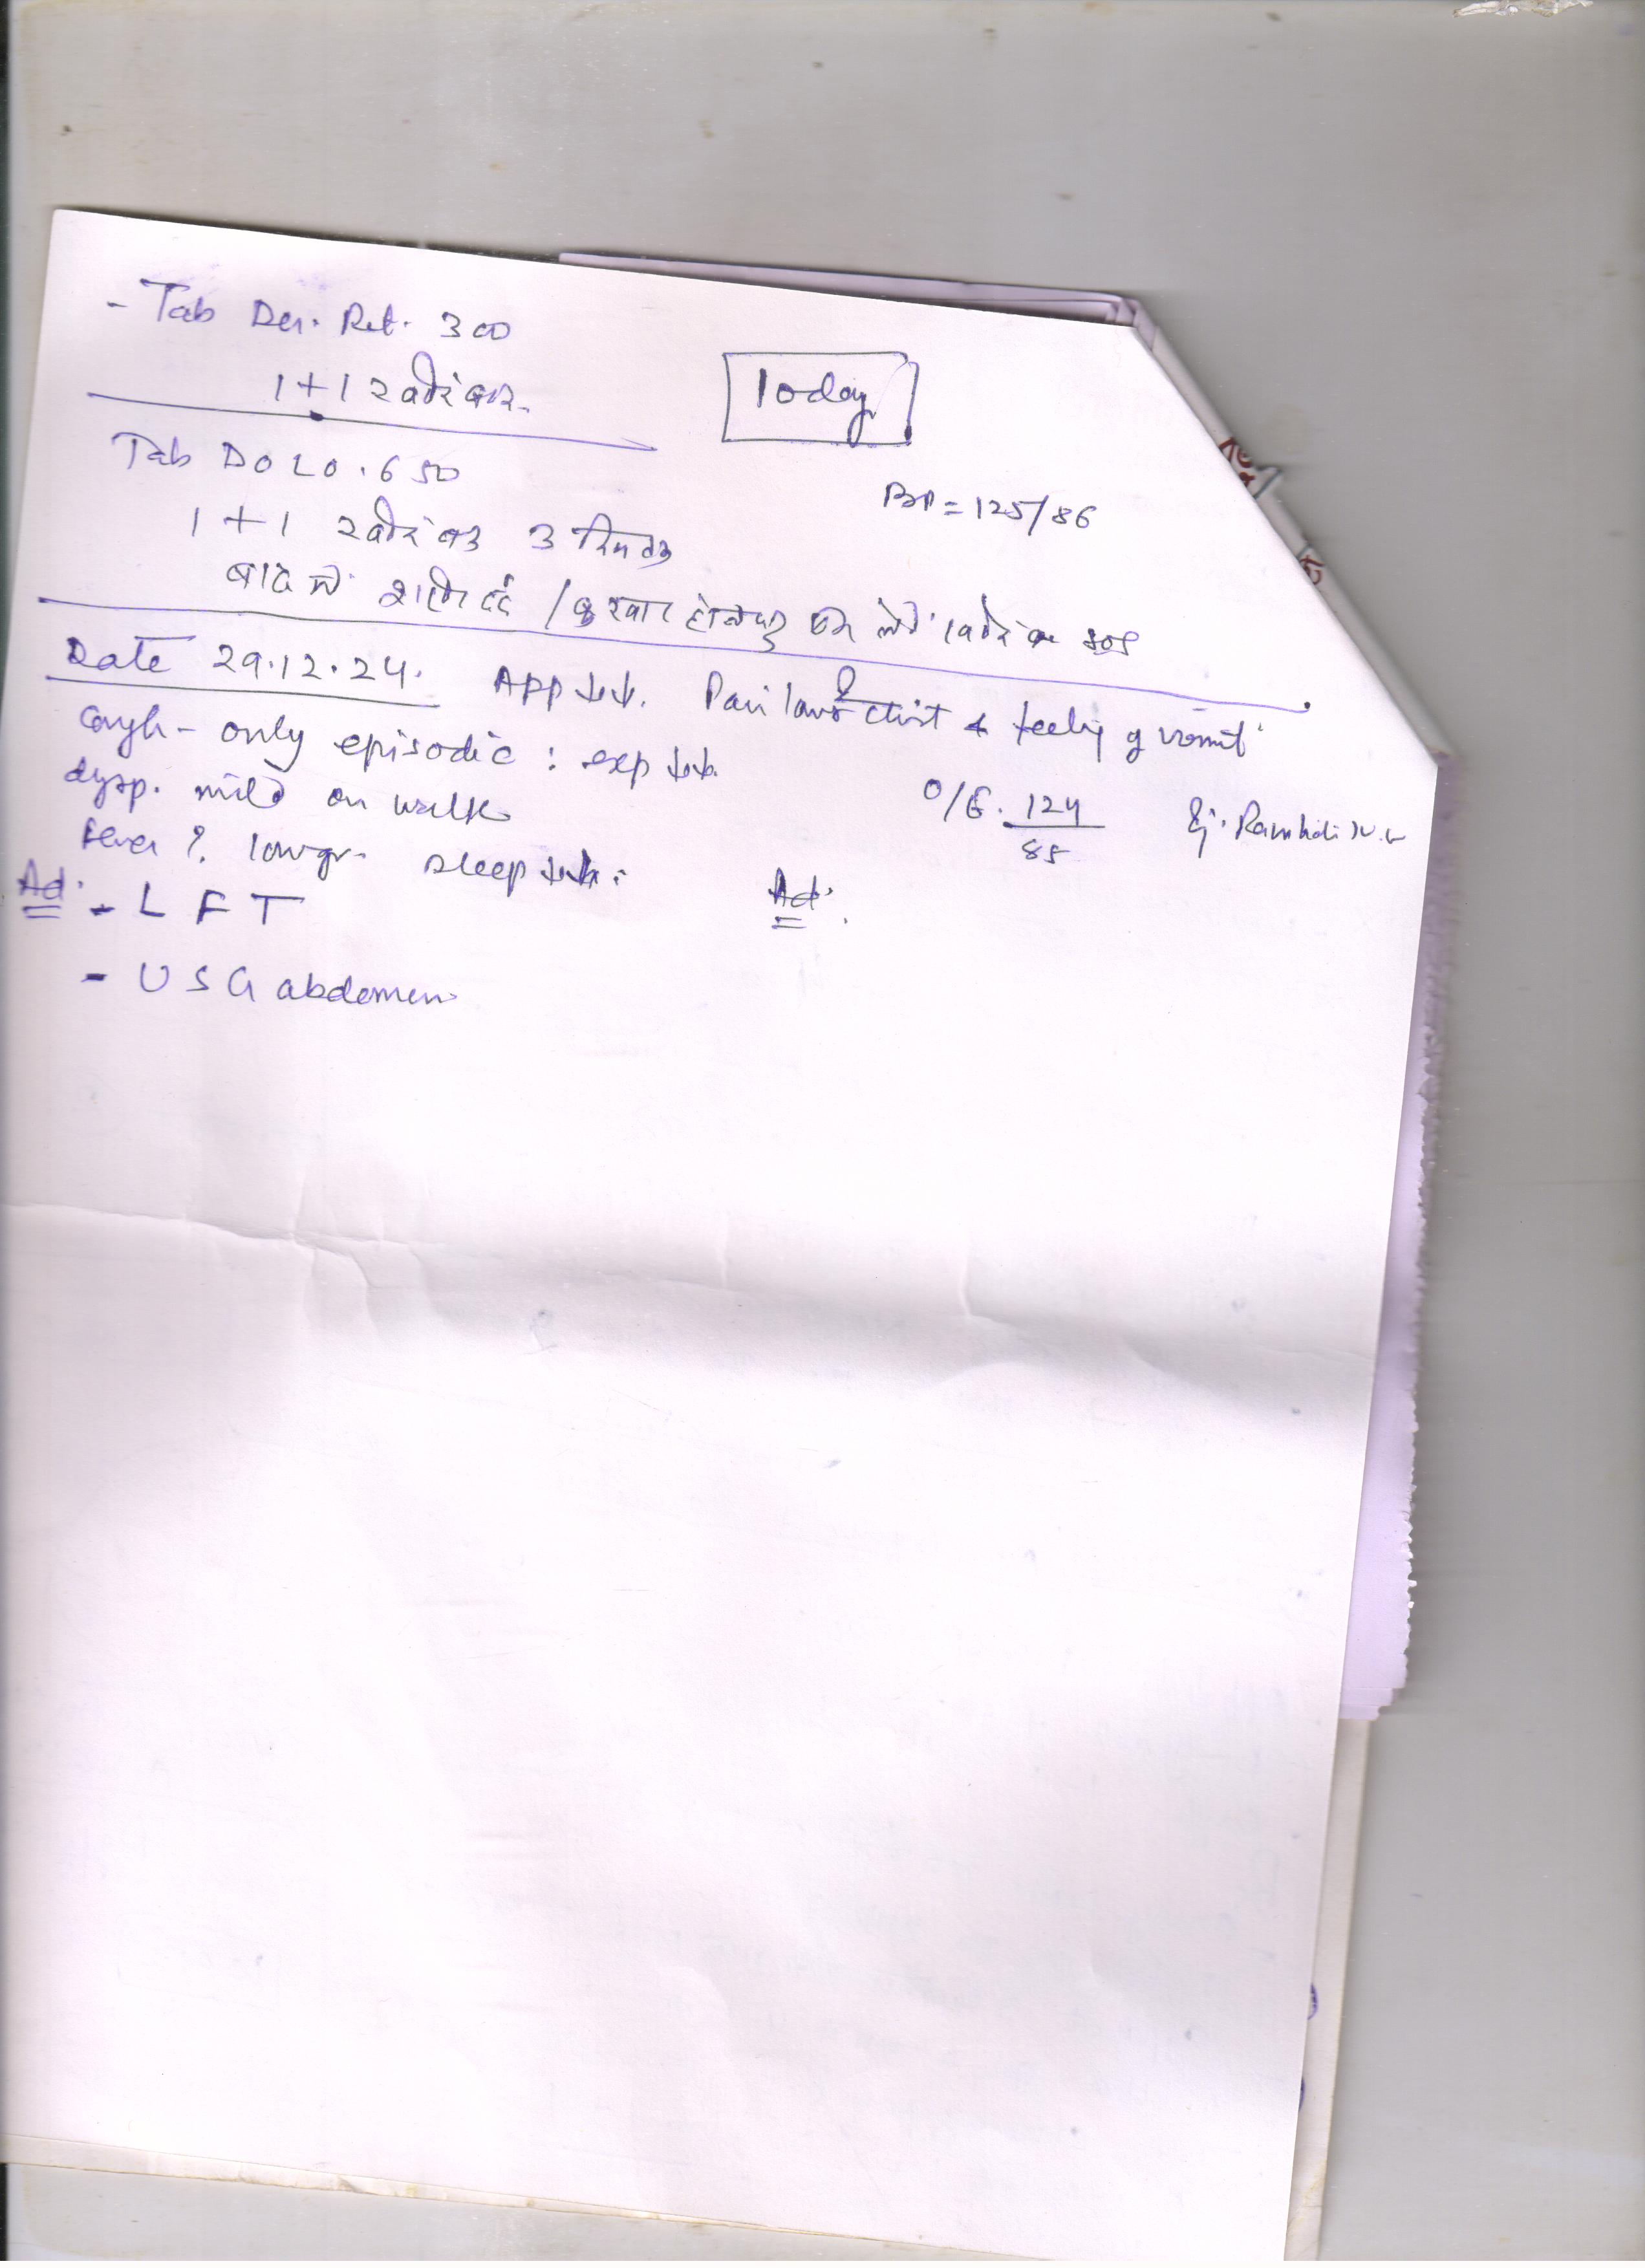 - Tab Der. Ret. 300
1+1 2 बार
Today
Tab DOLO. 650
BP = 125/86
1 + 1 3 दिन तक
बाद में दर्द / बुखार होने पर SOS
Date 29.12.24. App ↓↓. Pain lower chest & feeling of vomit
Cough - only episodic : exp ↓↓
dysp. mild on walk
O/E. 124/85 Inj.
fever ?. low gr. sleep ↓↓.
Ad. - LFT
Ad.
- USG abdomen